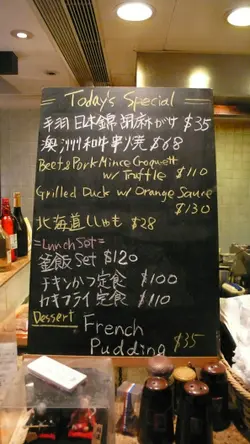 Today's Special
平羽日本錦胡麻がけ $35
澳洲和牛串焼 $68
Beef & Pork Mince Croquett
w/ Truffle $110
Grilled Duck w/ Orange Sauce
$130
北海道ししゃも $28
=Lunch Set=
釜飯 Set $120
チキンかつ定食 $100
カキフライ定食 $110
Dessert French
Pudding $35